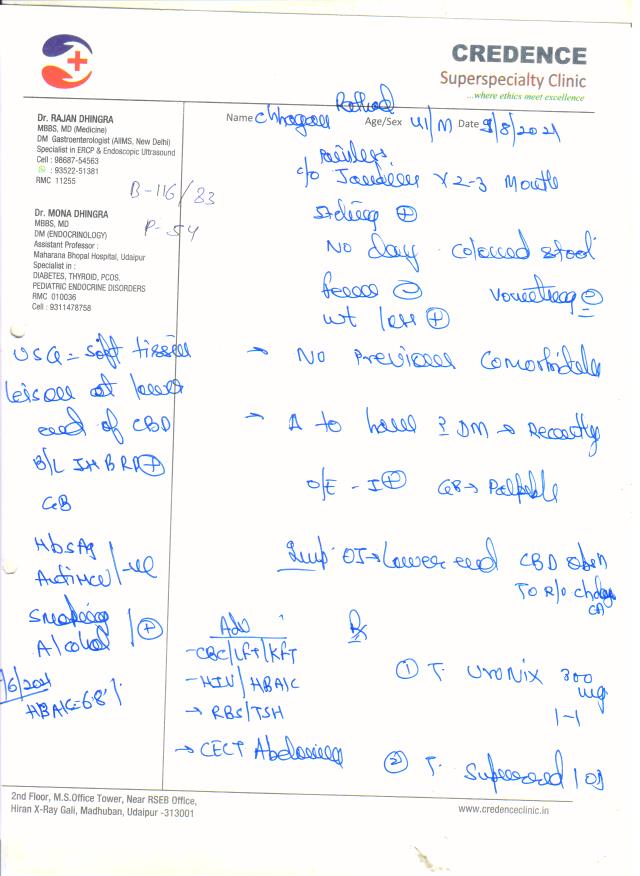 CREDENCE
Superspecialty Clinic
...where ethics meet excellence
Dr. RAJAN DHINGRA
MBBS, MD (Medicine)
DM Gastroenterologist (AIIMS, New Delhi)
Specialist in ERCP & Endoscopic Ultrasound
Cell : 98687-54563
: 93522-51381
RMC 11255
B-116/83
P-54
Dr. MONA DHINGRA
MBBS, MD
DM (ENDOCRINOLOGY)
Assistant Professor :
Maharana Bhopal Hospital, Udaipur
Specialist in :
DIABETES, THYROID, PCOS.
PEDIATRIC ENDOCRINE DISORDERS
RMC 010036
Cell : 9311478758
Name Age/Sex 41/M Date 9/8/2021
c/o Jaundice x 2-3 Months
No clay coloured stool
vomiting ⊖
wt loss ⊕
→ No Previous Comorbidities
→ DM → Recently
O/E - I ⊕ GB → Palpable
Imp OI → Lower end CBD
TO R/O
USG = soft tissue
lesion at lower
end of CBD
B/L IHBRD ⊕
GB
HbsAg
Anti HCV /-ve
Smoking
Alcohol /⊕
/6/2021
HBA1C = 6.8%
Adv
- CBC/LFT/KFT
- HIV/HBA1C
→ RBS/TSH
→ CECT Abdomen
Rx
① T. UroNix 300
mg
1-1
② T. 1 OD
2nd Floor, M.S.Office Tower, Near RSEB Office,
Hiran X-Ray Gali, Madhuban, Udaipur -313001
www.credenceclinic.in